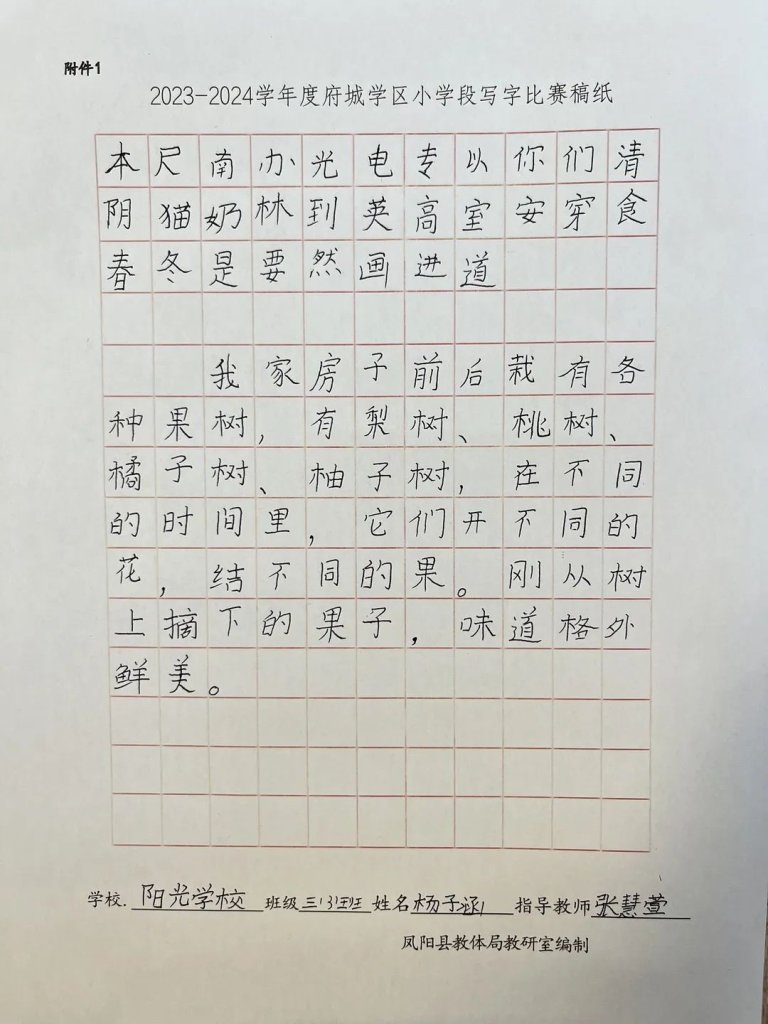 附件1
2023-2024学年度府城学区小学段写字比赛稿纸
本尺南办光电专以你们清
阴猫奶林到英高室安穿食
春冬是要然画进道
我家房子前后栽有各
种果树，有梨树、桃树、
橘子树、柚子树，在不同
的时间里，它们开不同的
花，结不同的果。刚从树
上摘下的果子，味道格外
鲜美。
学校.阳光学校 班级三(3)班 姓名杨子涵 指导教师张慧萱
凤阳县教体局教研室编制